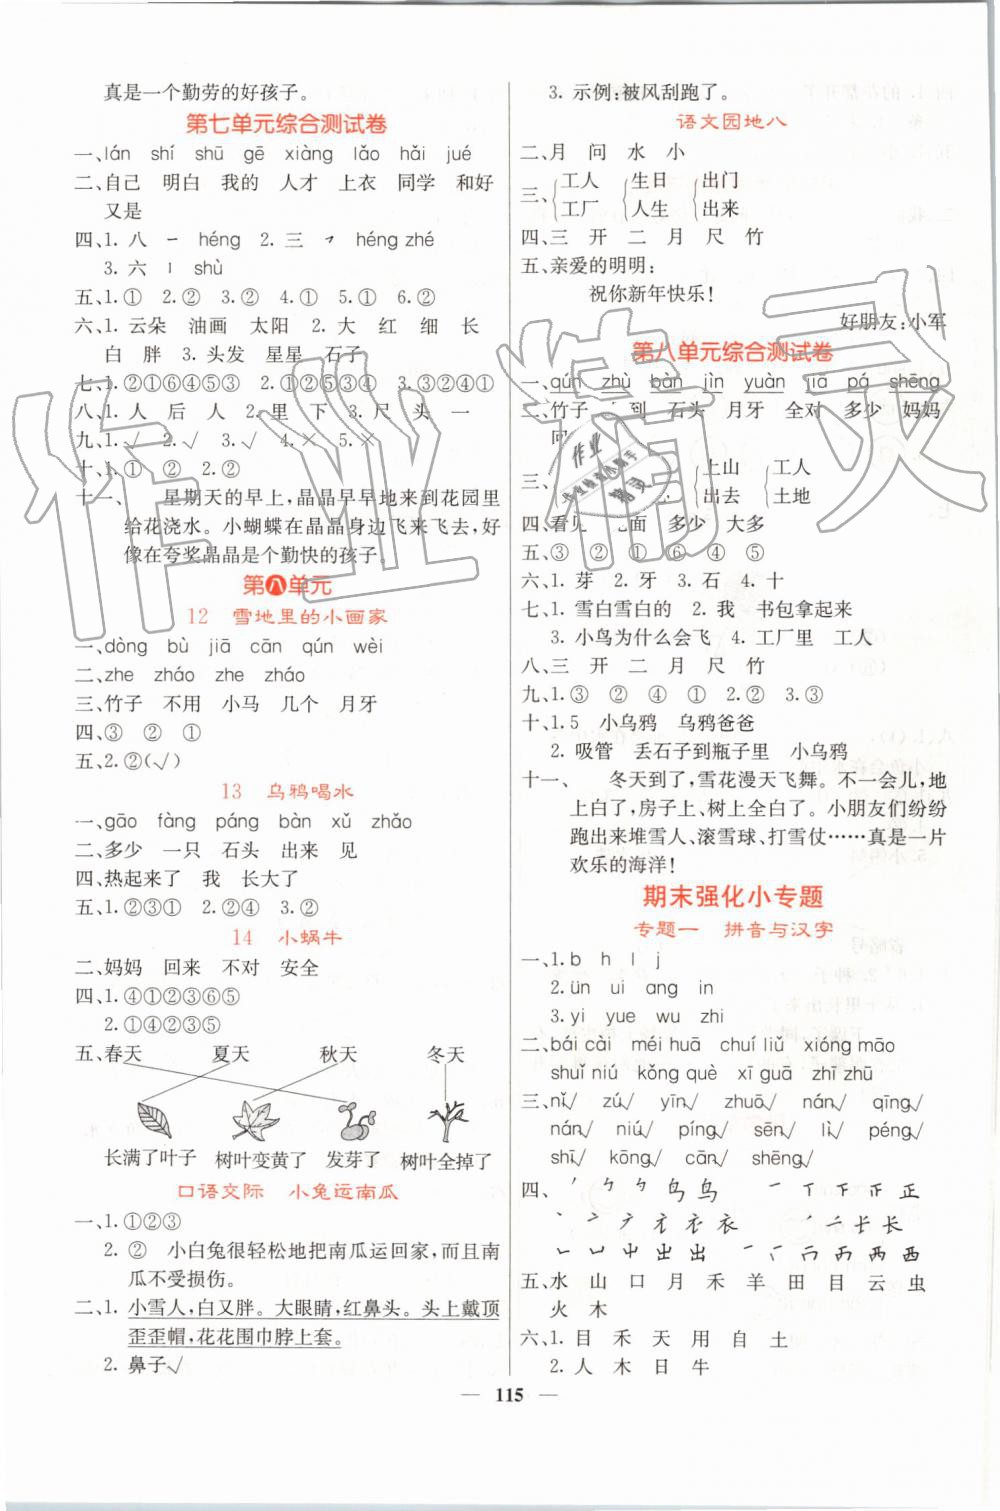 真是一个勤劳的好孩子。
第七单元综合测试卷
一、lán shí shū gē xiàng lǎo hǎi jué
二、自己 明白 我的 人才 上衣 同学 和好
又是
四、1. 八 ㇀ héng 2. 三 ㇇ héng zhé
3. 六 丨 shù
五、1.① 2.② 3.② 4.① 5.① 6.②
六、1. 云朵 油画 太阳 2. 大 红 细 长
白 胖 3. 头发 星星 石子
七、1.②①⑥④⑤③ 2.①②⑤③④ 3.③②④①
八、1. 人 后 人 2. 里 下 3. 尺 头 一
九、1.√ 2.√ 3.√ 4.× 5.×
十、1.① ② 2.②
十一、 星期天的早上,晶晶早早地来到花园里
给花浇水。小蝴蝶在晶晶身边飞来飞去,好
像在夸奖晶晶是个勤快的孩子。
第八单元
12 雪地里的小画家
一、dòng bù jiā cān qún wèi
二、zhe zháo zhe zháo
三、竹子 不用 小马 几个 月牙
四、③ ② ①
五、2.②(√)
13 乌鸦喝水
一、gāo fàng páng bàn xǔ zhǎo
二、多少 一只 石头 出来 见
四、热起来了 我 长大了
五、1.②③① 2.④② 3.②
14 小蜗牛
二、妈妈 回来 不对 安全
四、1.④①②③⑥⑤
2.①④②③⑤
五、春天 夏天 秋天 冬天
长满了叶子 树叶变黄了 发芽了 树叶全掉了
口语交际 小兔运南瓜
一、1.①②③
2.② 小白兔很轻松地把南瓜运回家,而且南
瓜不受损伤。
二、1. 小雪人,白又胖。大眼睛,红鼻头。头上戴顶
歪歪帽,花花围巾脖上套。
2. 鼻子√
3. 示例:被风刮跑了。
语文园地八
二、月 问 水 小
三、{工人 工厂 {生日 人生 {出门 出来
四、三 开 二 月 尺 竹
五、亲爱的明明:
祝你新年快乐!
好朋友:小军
第八单元综合测试卷
一、qún zhù bàn jìn yuàn jiā pá shēng
二、竹子 到 石头 月牙 全对 多少 妈妈
三、{上山 出去 {工人 土地
四、看见 面 多少 大多
五、③ ② ① ⑥ ④ ⑤
六、1. 芽 2. 牙 3. 石 4. 十
七、1. 雪白雪白的 2. 我 书包拿起来
3. 小鸟为什么会飞 4. 工厂里 工人
八、三 开 二 月 尺 竹
九、1.③ ② ④ ① 2.② 3.③
十、1.5 小乌鸦 乌鸦爸爸
2. 吸管 丢石子到瓶子里 小乌鸦
十一、 冬天到了,雪花漫天飞舞。不一会儿,地
上白了,房子上、树上全白了。小朋友们纷纷
跑出来堆雪人、滚雪球、打雪仗……真是一片
欢乐的海洋!
期末强化小专题
专题一 拼音与汉字
一、1. b h l j
2. ün ui ang in
3. yi yue wu zhi
二、bái cài méi huā chuí liǔ xióng māo
shuǐ niú kǒng què xī guā zhī zhū
三、nǐ√ zú√ yīn√ zhuō√ nán√ qīng√
nán√ niú√ píng√ sēn√ lì√ péng√
shī√ kōng√ cān√ dēng√
四、
五、水 山 口 月 禾 羊 田 目 云 虫
火 木
六、1. 目 禾 天 用 自 土
2. 人 木 日 牛
115
作业精灵